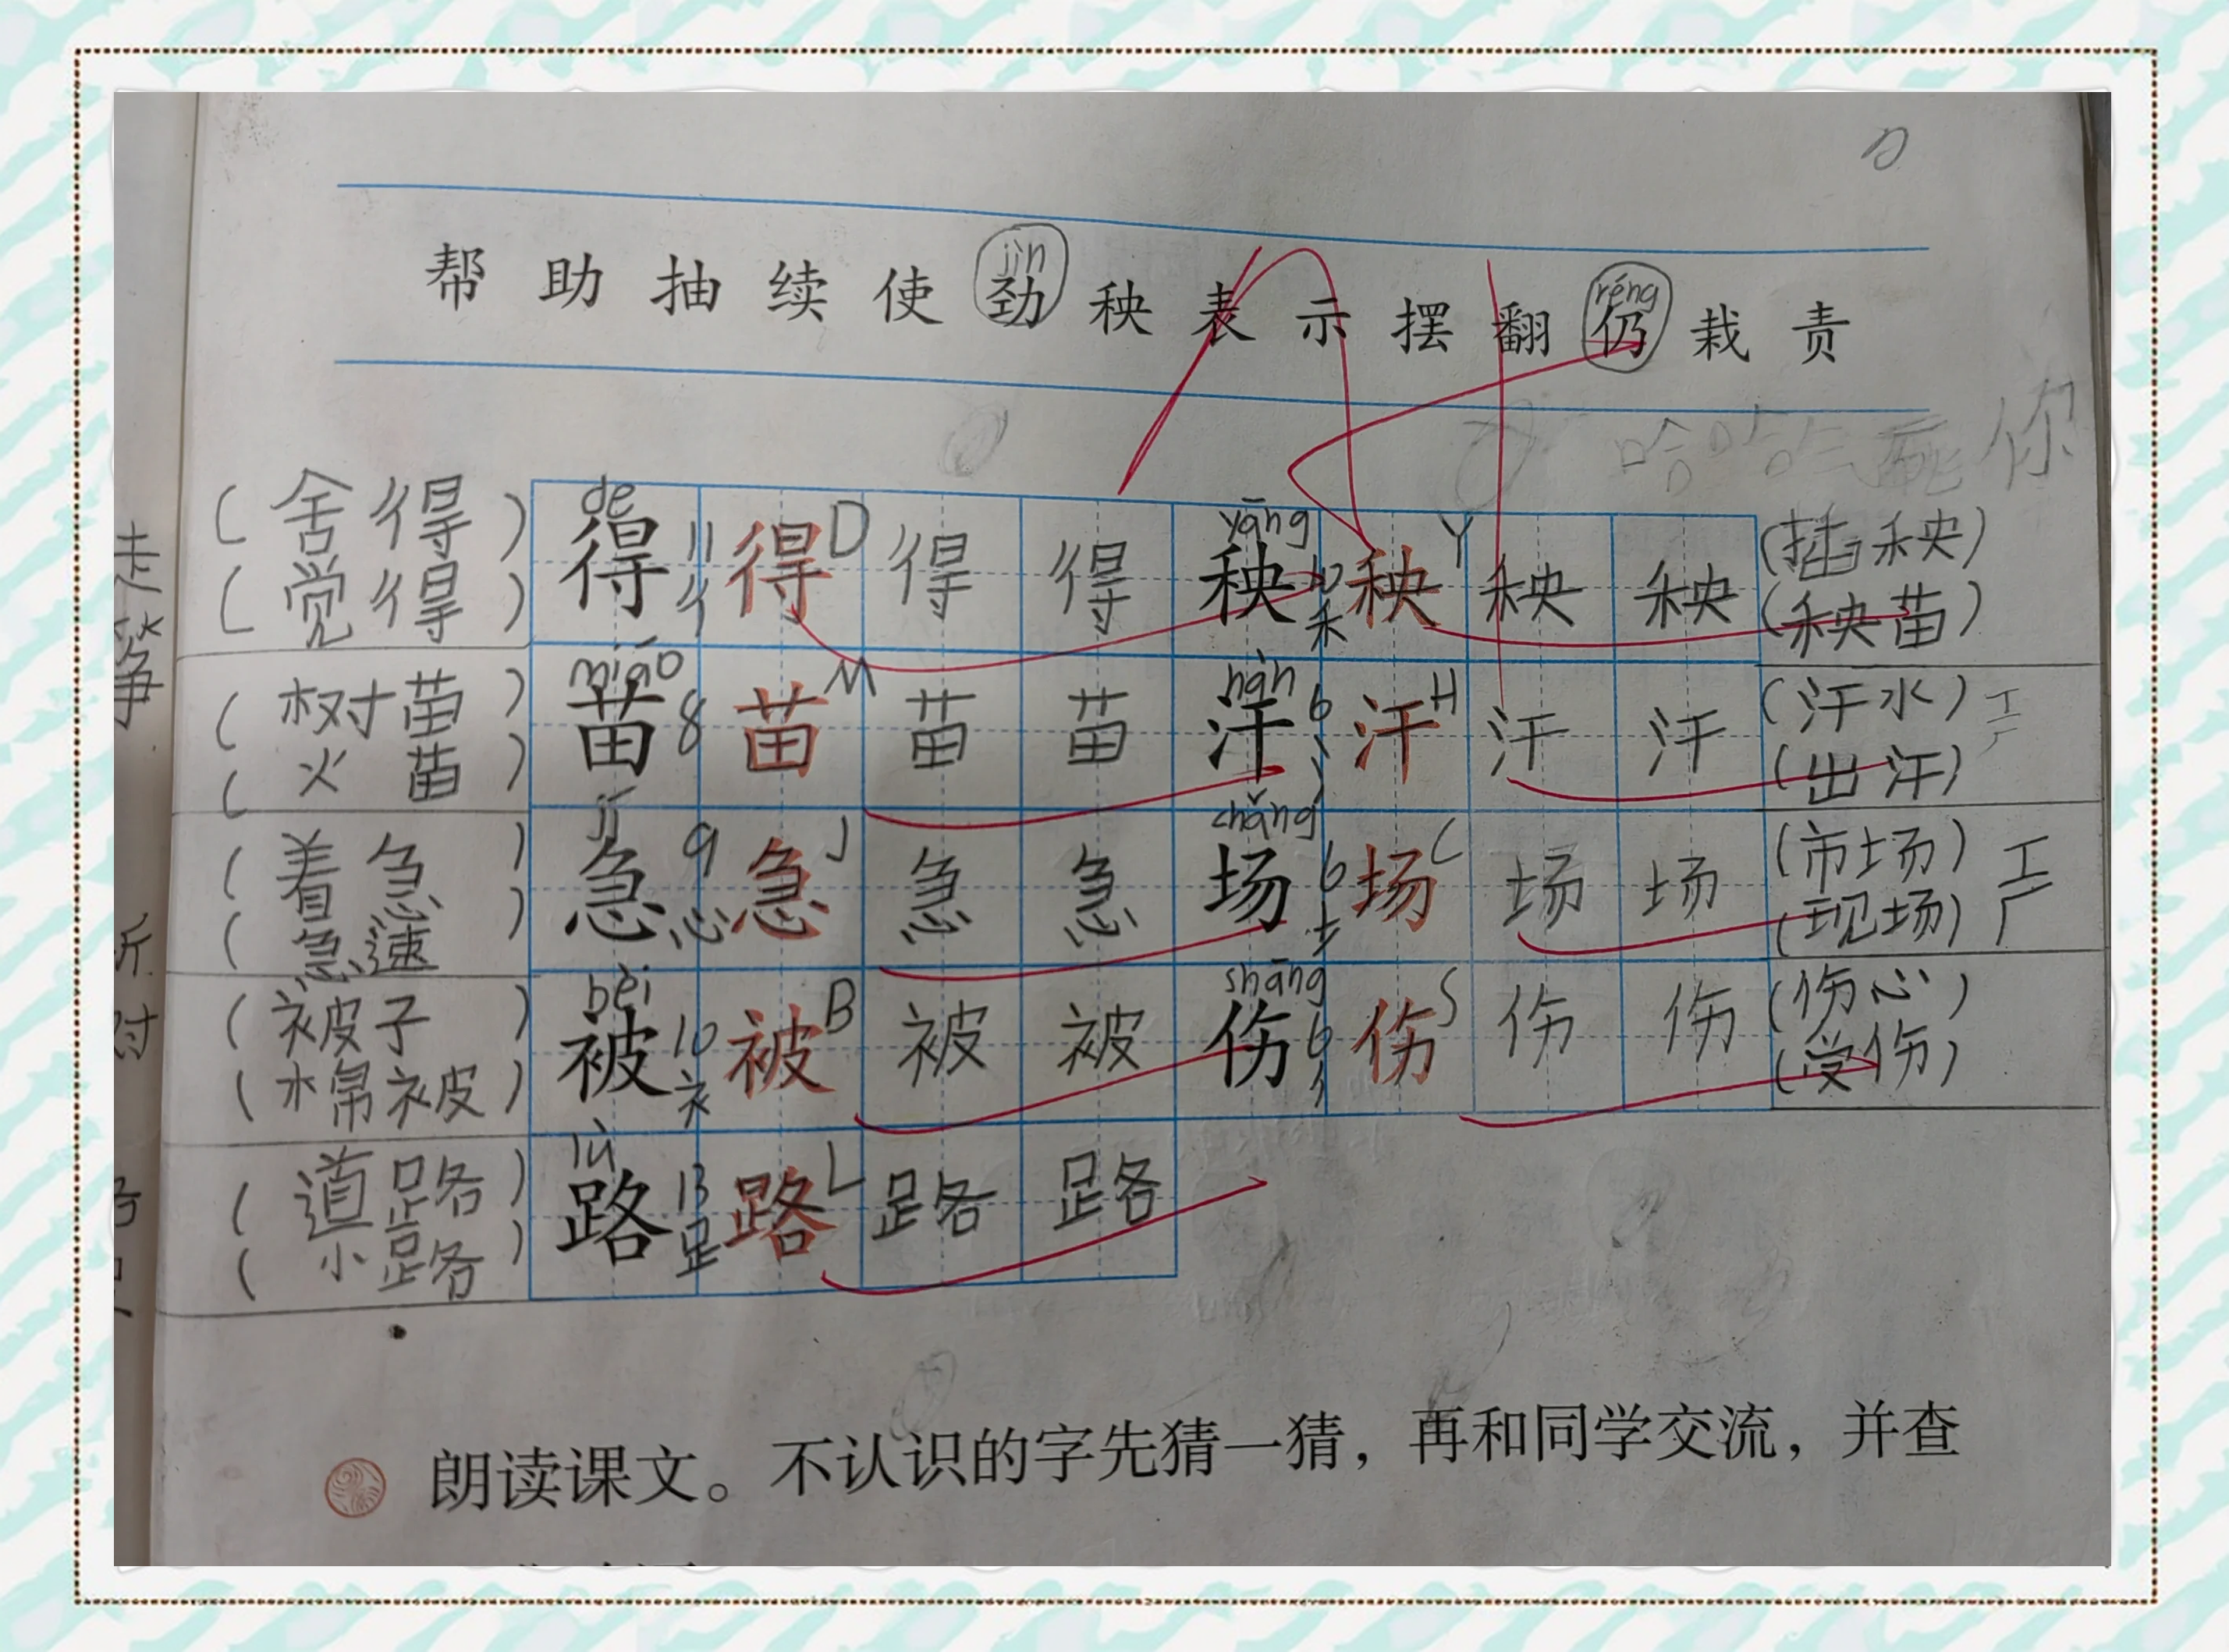 jìn réng
帮 助 抽 续 使 劲 秧 表 示 摆 翻 仍 栽 责
哈哈气死你
(舍得) de 得 11 彳 得 D 得 得 yāng 秧 10 禾 秧 Y 秧 秧 (插秧)
(觉得) (秧苗)
(树苗) miáo 苗 8 苗 M 苗 苗 hàn 汗 6 氵 汗 H 汗 汗 (汗水) 工厂
(火苗) (出汗)
(着急) jí 急 9 心 急 J 急 急 chǎng 场 6 土 场 C 场 场 (市场) 工厂
(急速) (现场)
(被子) bèi 被 10 衤 被 B 被 被 shāng 伤 6 亻 伤 S 伤 伤 (伤心)
(棉被) (受伤)
(道路) lù 路 13 足 路 L 路 路
(小路)
朗读课文。不认识的字先猜一猜，再和同学交流，并查